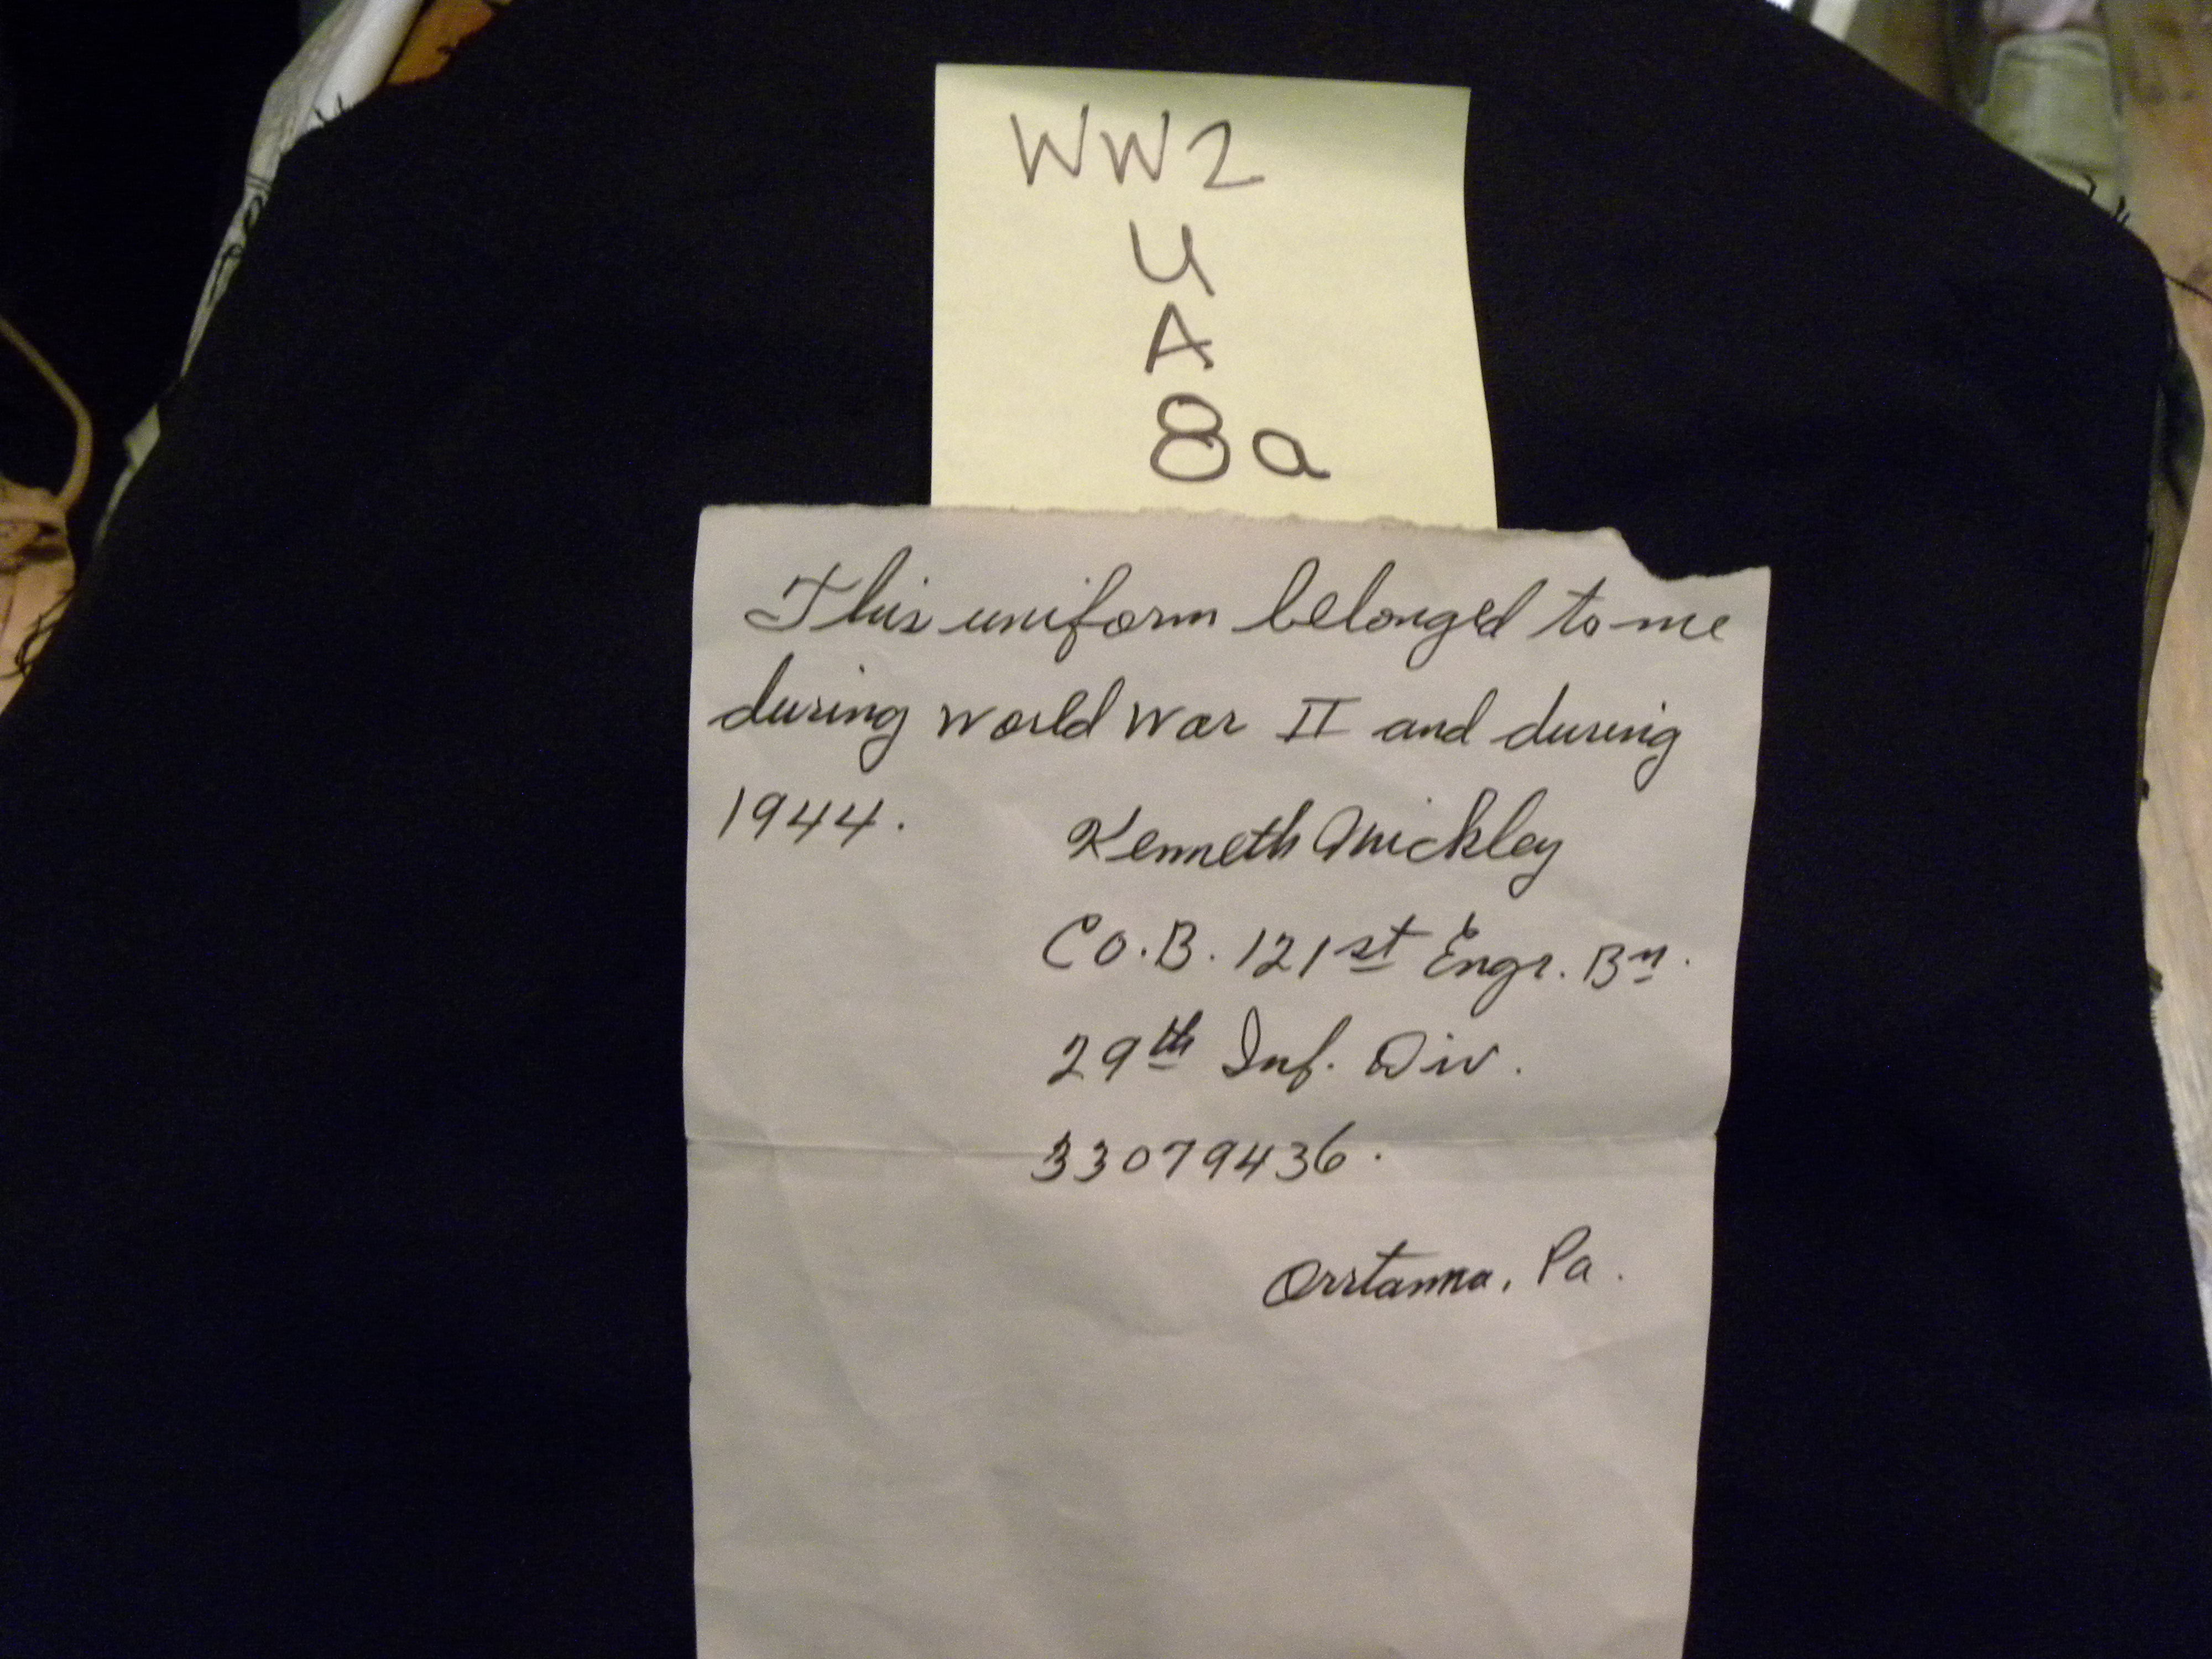 WW2
U
A
8a
This uniform belonged to me
during World War II and during
1944.
Kenneth Quickley
Co. B. 121st Engr. Bn.
29th Inf. Div.
33079436.
Orrtanna, Pa.